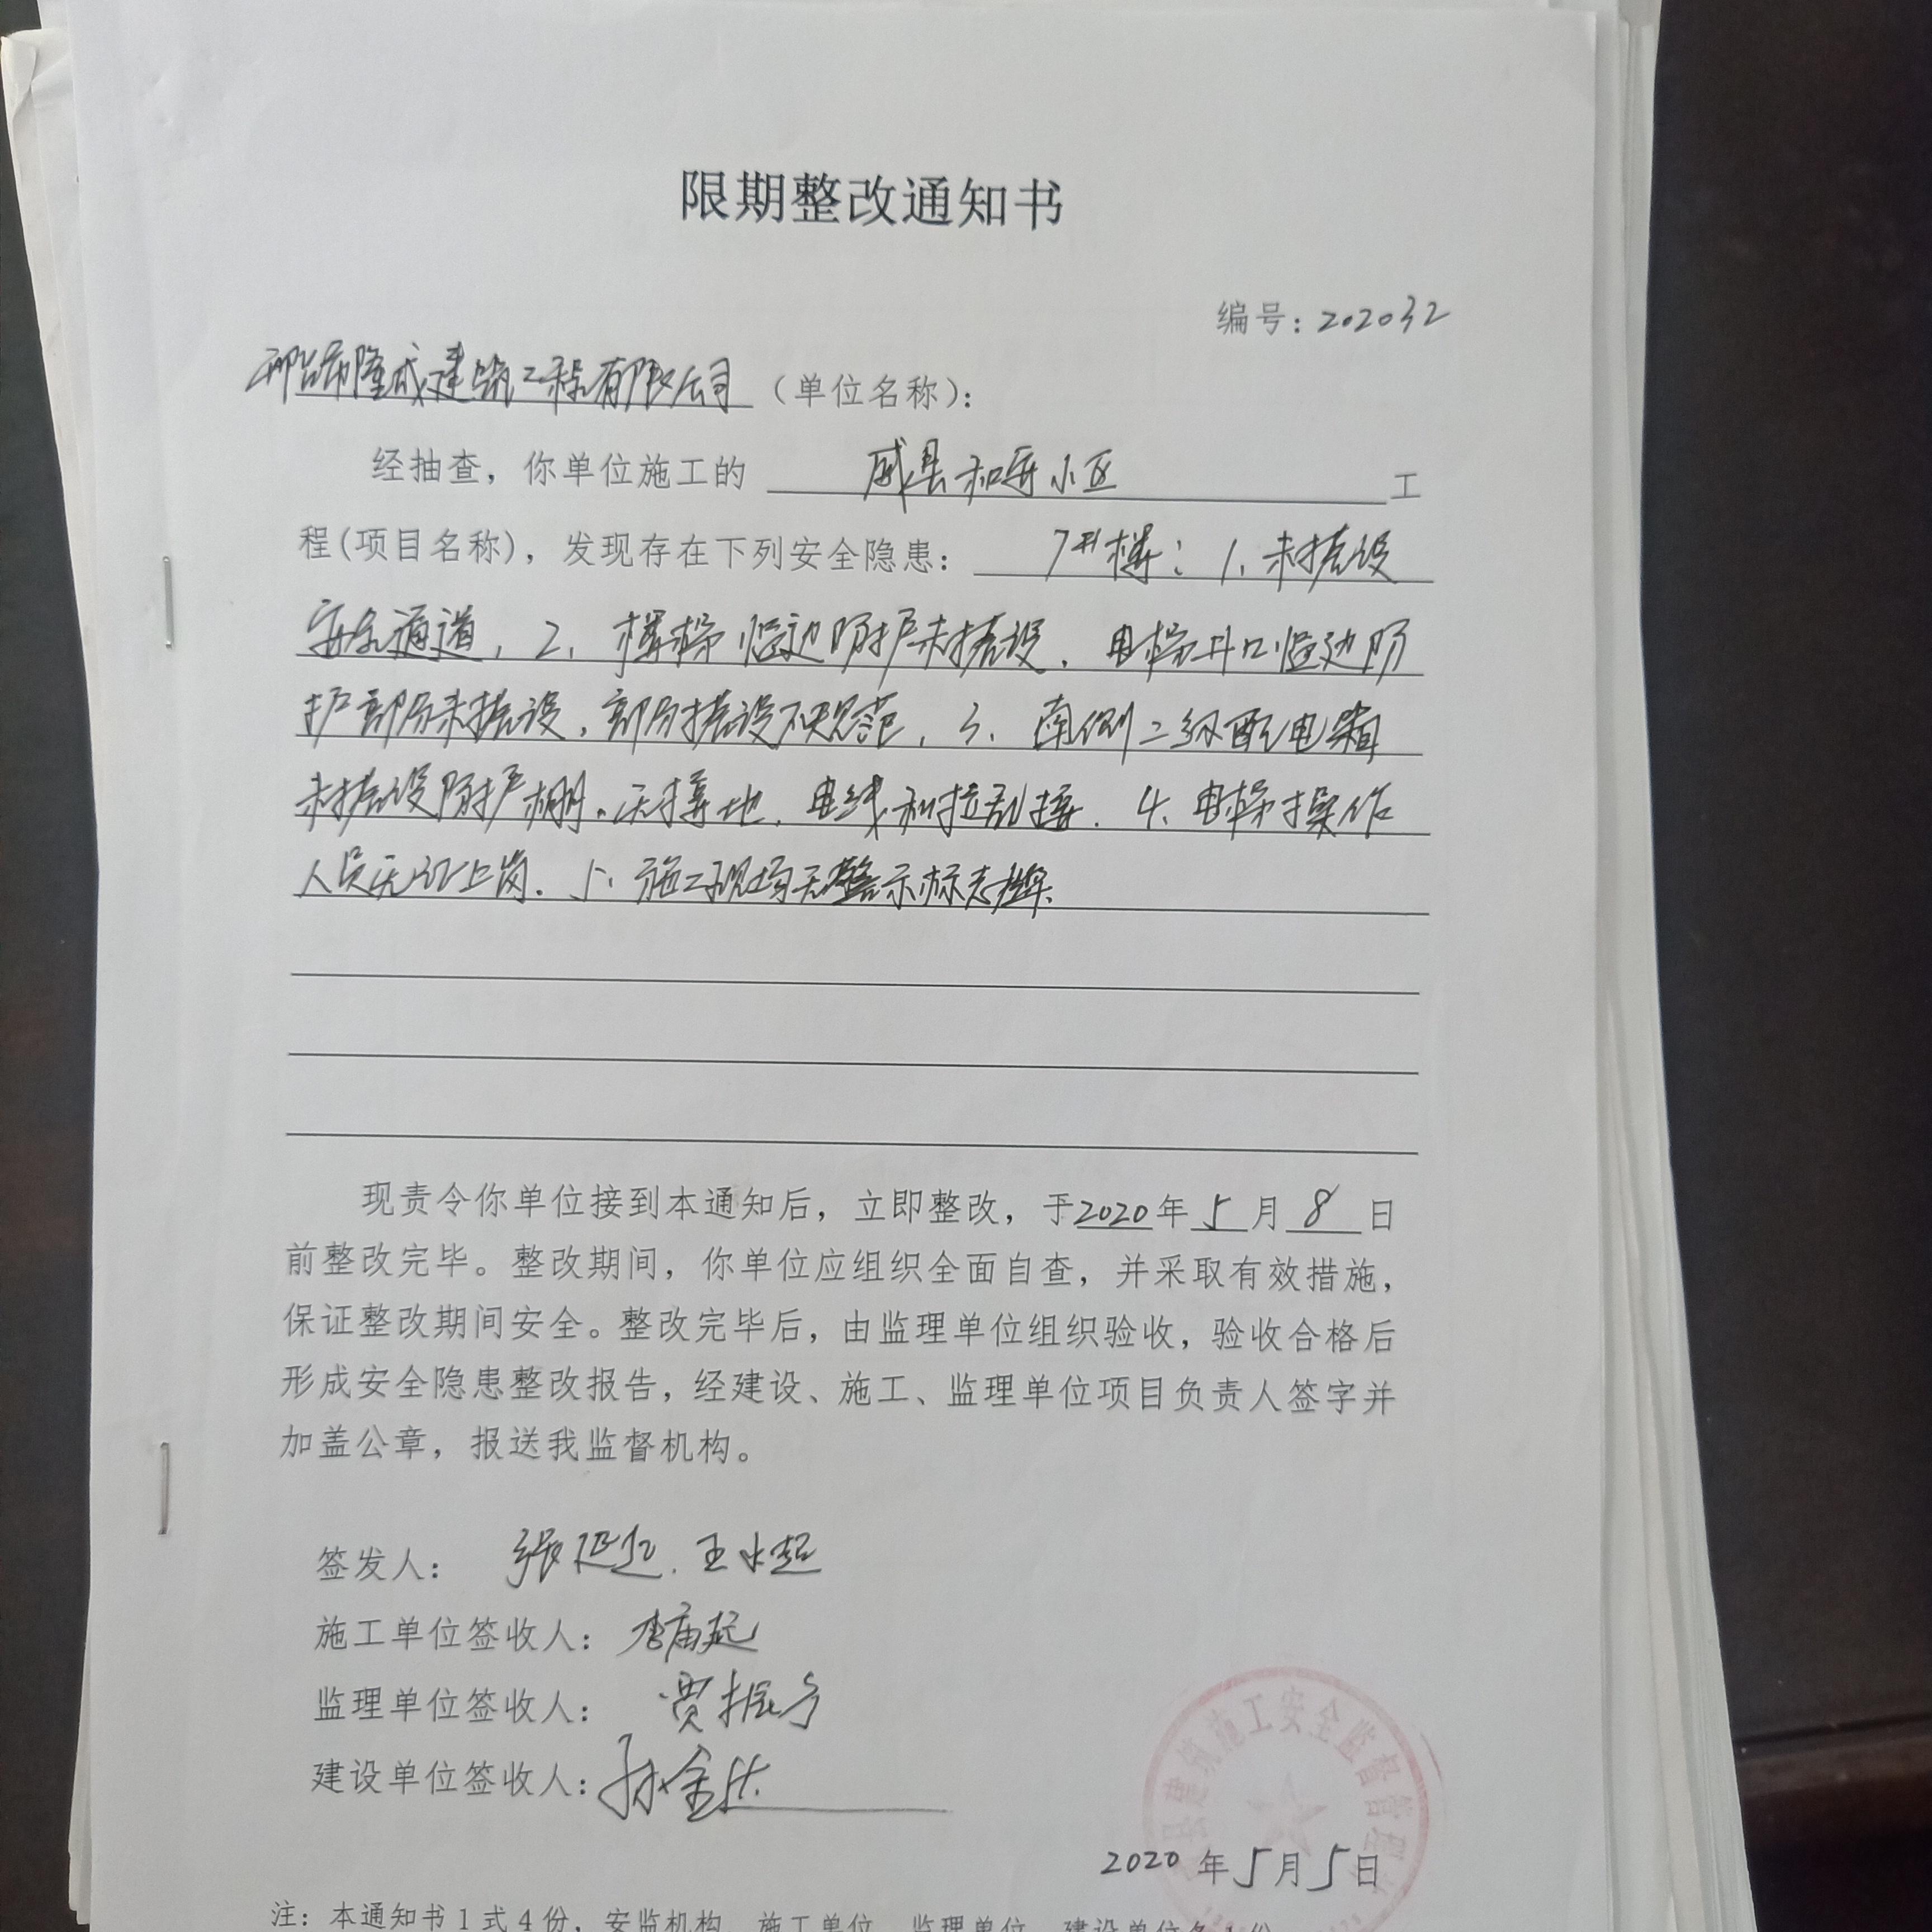 限期整改通知书
编号：202032
邢台市隆成建筑工程有限公司（单位名称）：
经抽查，你单位施工的 威县和安小区 工
程(项目名称)，发现存在下列安全隐患： 7#楼：1、未搭设
安全通道，2、楼梯临边防护未搭设，电梯井口临边防
护部分未搭设，部分搭设不规范，3、南侧二级配电箱
未搭设防护棚。无接地，电线私拉乱接，4、电梯操作
人员无证上岗，5、施工现场无警示标志牌、
现责令你单位接到本通知后，立即整改，于2020年5月8日
前整改完毕。整改期间，你单位应组织全面自查，并采取有效措施，
保证整改期间安全。整改完毕后，由监理单位组织验收，验收合格后
形成安全隐患整改报告，经建设、施工、监理单位项目负责人签字并
加盖公章，报送我监督机构。
签发人： 张延 王 超
施工单位签收人： 李 起
监理单位签收人： 贾振
建设单位签收人： 孙金
县建筑施工安全监督管理
2020年5月5日
注：本通知书1式4份，安监机构、施工单位、监理单位、建设单位各1份